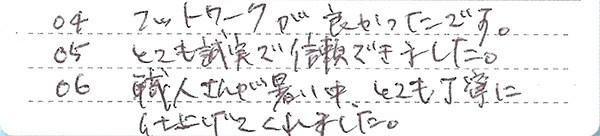 04 フットワークが良かったです。
05 とても誠実で信頼できました。
06 職人さんが暑い中、とても丁寧に
仕上げてくれました。